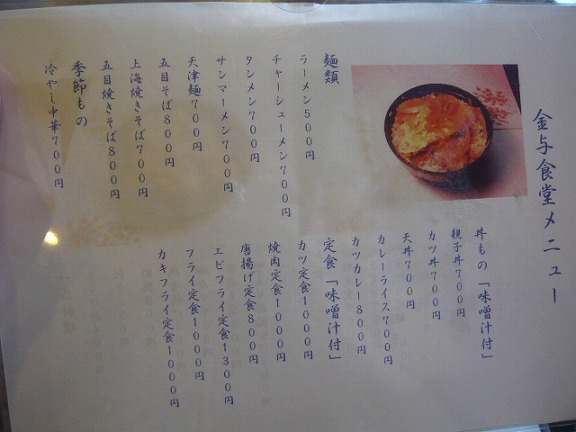 金与食堂メニュー
丼もの「味噌汁付」
親子丼７００円
カツ丼７００円
天丼７００円
カレーライス７００円
カツカレー８００円
定食「味噌汁付」
カツ定食１０００円
焼肉定食１０００円
唐揚げ定食８００円
エビフライ定食１３００円
フライ定食１０００円
カキフライ定食１０００円
麺類
ラーメン５００円
チャーシューメン７００円
タンメン７００円
サンマーメン７００円
天津麺７００円
五目そば８００円
上海焼きそば７００円
五目焼きそば８００円
季節もの
冷やし中華７００円